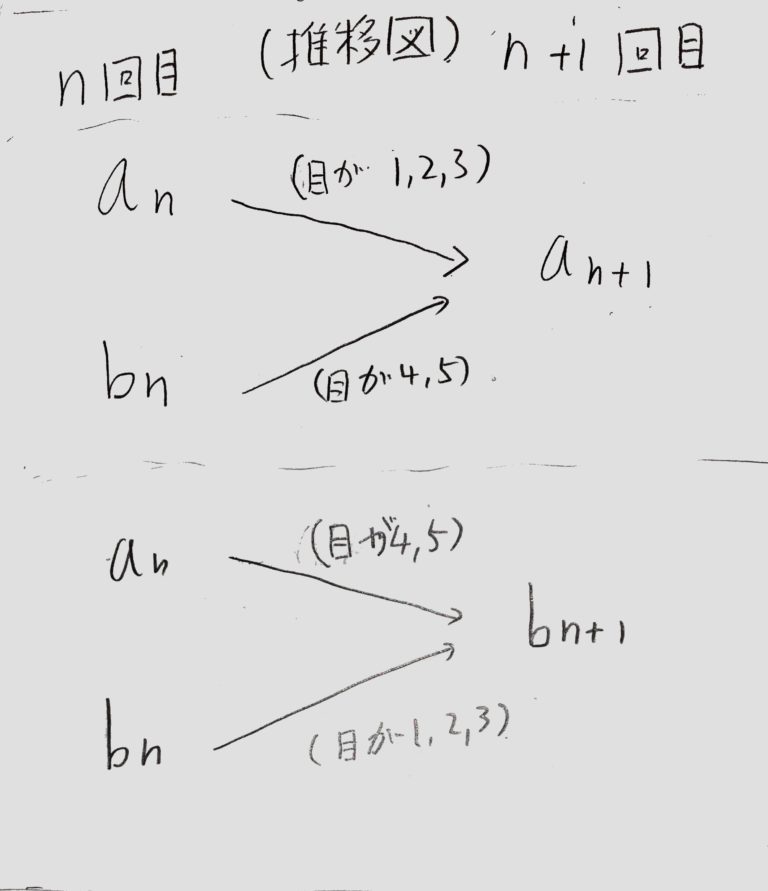 n回目 (推移図) n+1回目
an (目が 1,2,3)
an+1
bn (目が4,5)
an (目が4,5)
bn+1
bn (目が1,2,3)